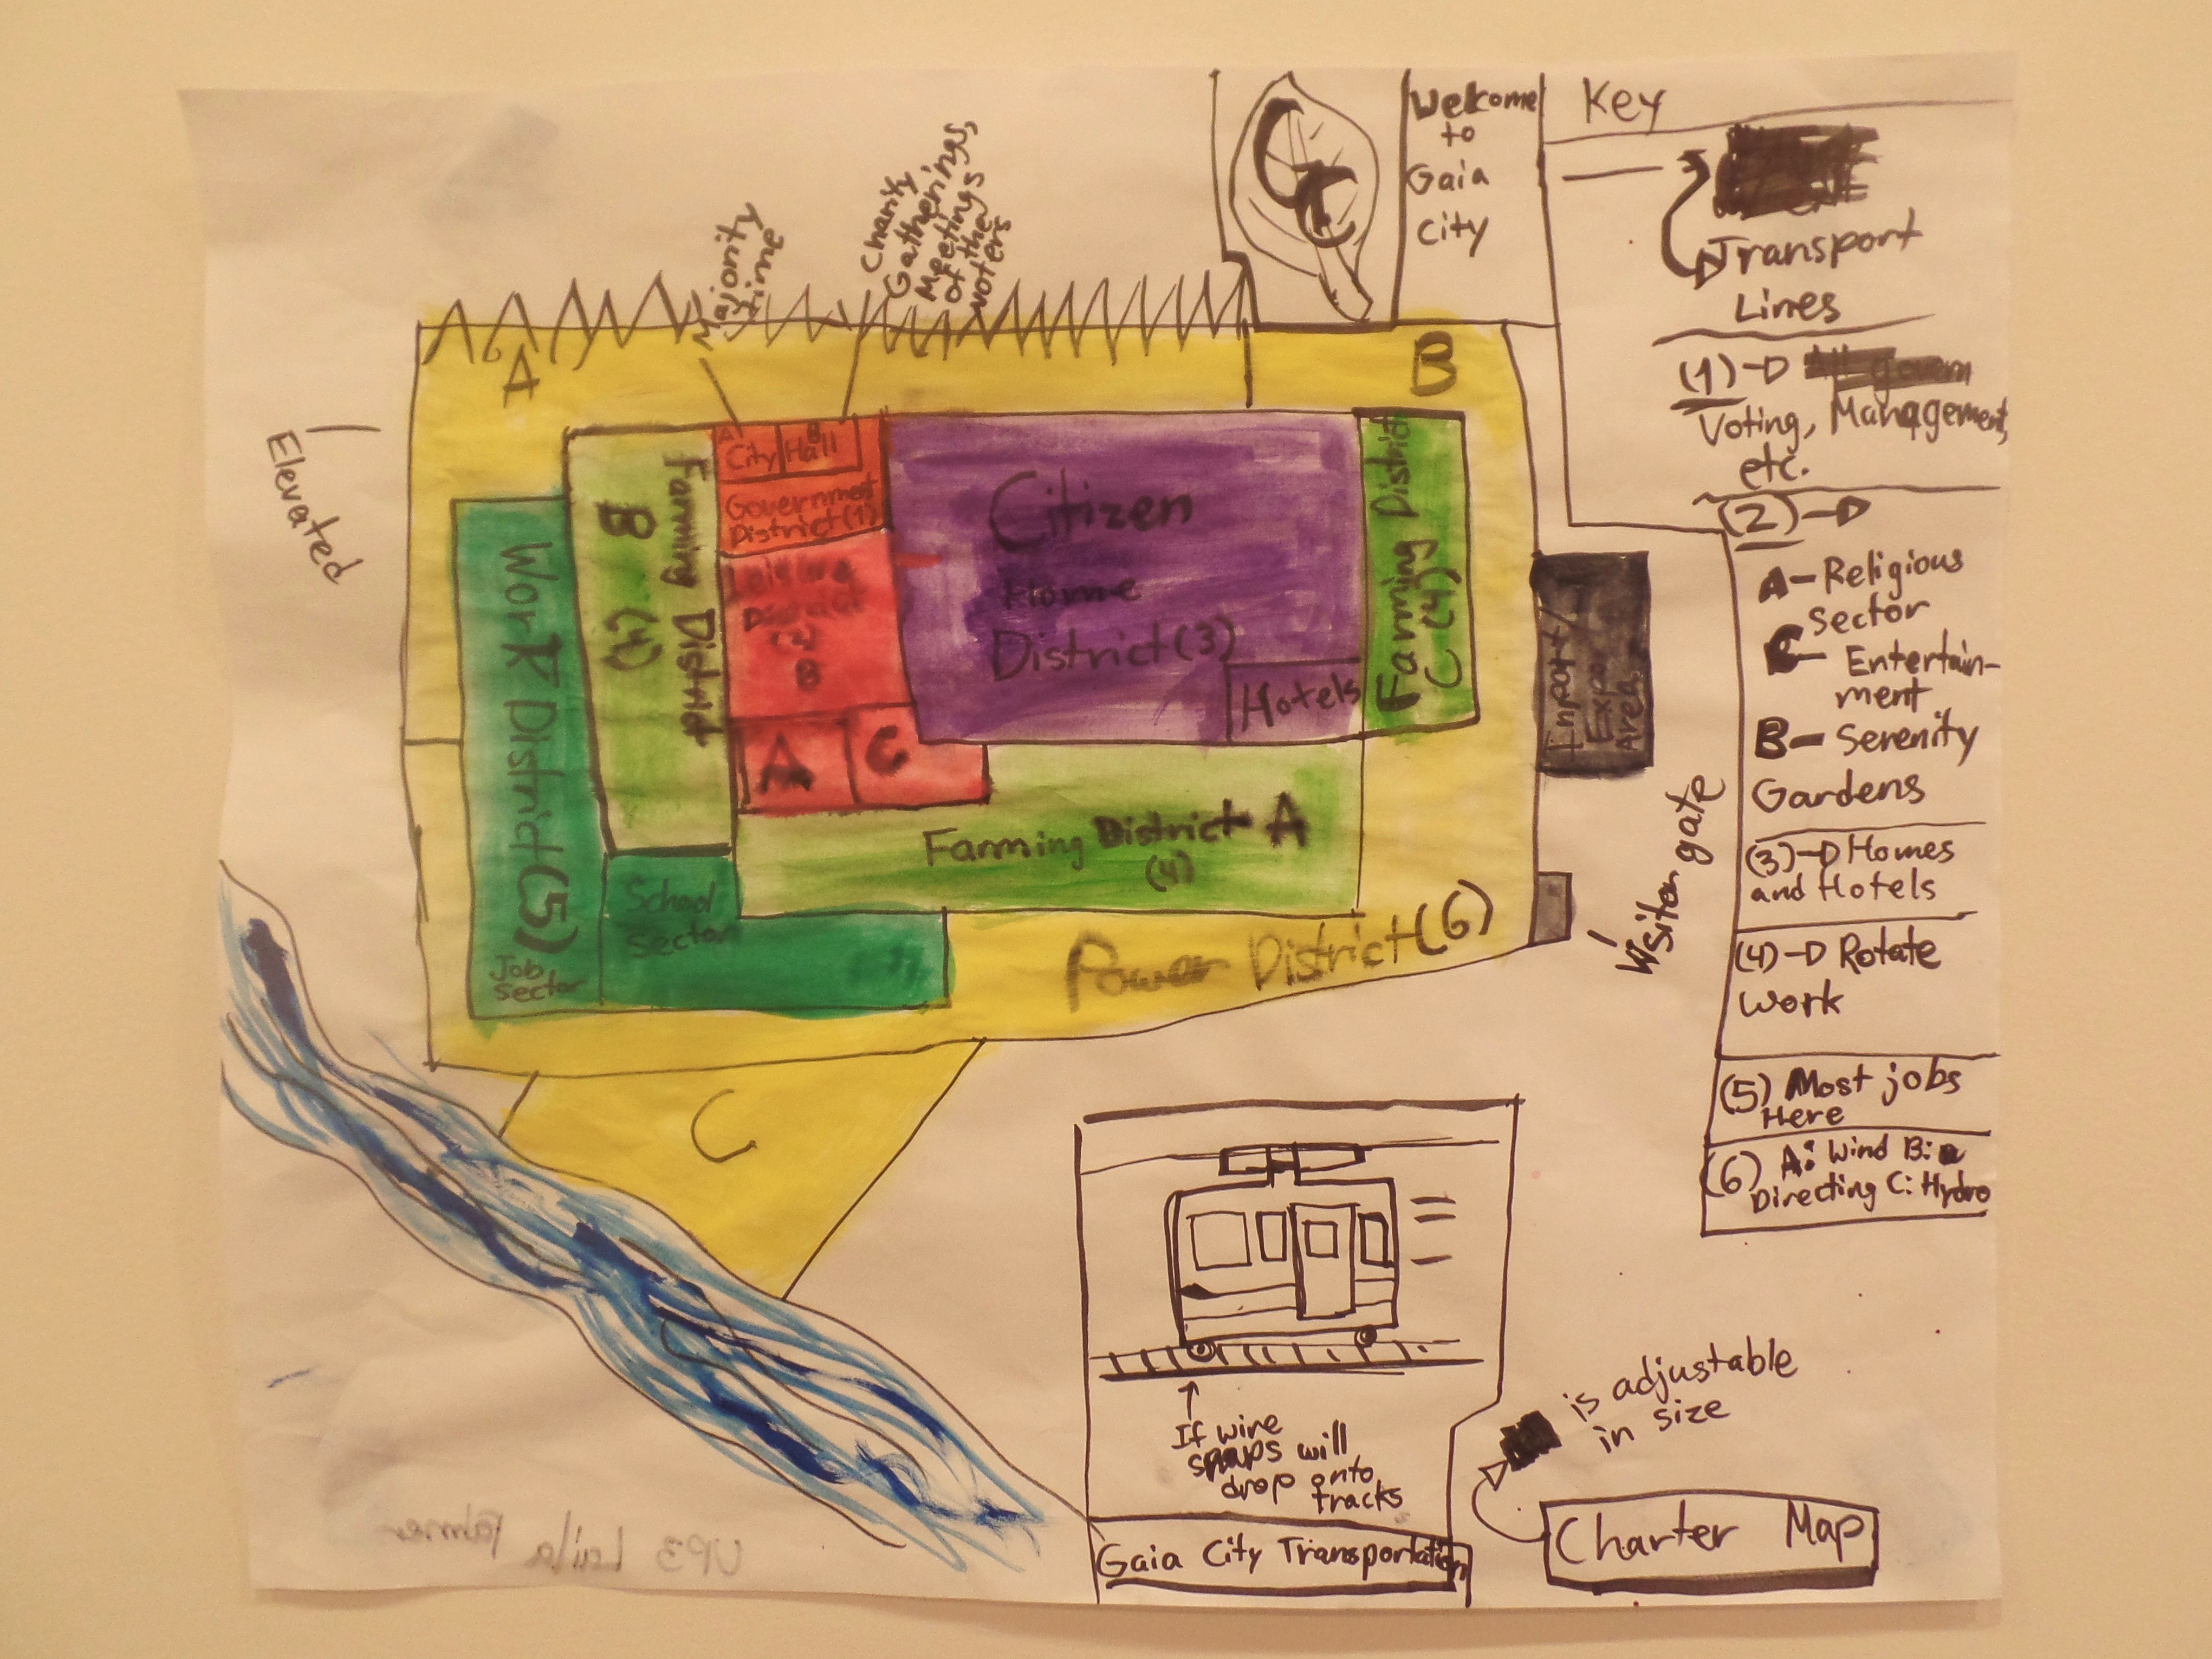 GC
Welcome
to
Gaia
City
Key
Transport
Lines
(1)
Voting, Management,
etc.
(2)
A-Religious
Sector
C- Entertain-
ment
B- Serenity
Gardens
(3) Homes
and Hotels
(4) Rotate
Work
(5) Most jobs
Here
(6) A: Wind B:
Directing C: Hydro
Majority
time
Charity
Gatherings,
Meetings
of the
voters
Elevated
A
B
A
City
B
Hall
Government
District (1)
Citizen
Home
District (3)
Hotels
District
(2)
B
A
C
Farming District
B (4)
Farming District
C (4)
Farming District A
(4)
Work District (5)
Job
sector
School
Sector
Power District (6)
C
Import/
Export
Area
Visitor gate
If wire
snaps will
drop onto
tracks
Gaia City Transportation
is adjustable
in size
Charter Map
UP3 Laila Palmer